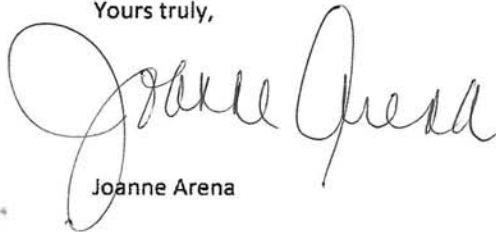 Yours truly,
Joanne Arena
Joanne Arena